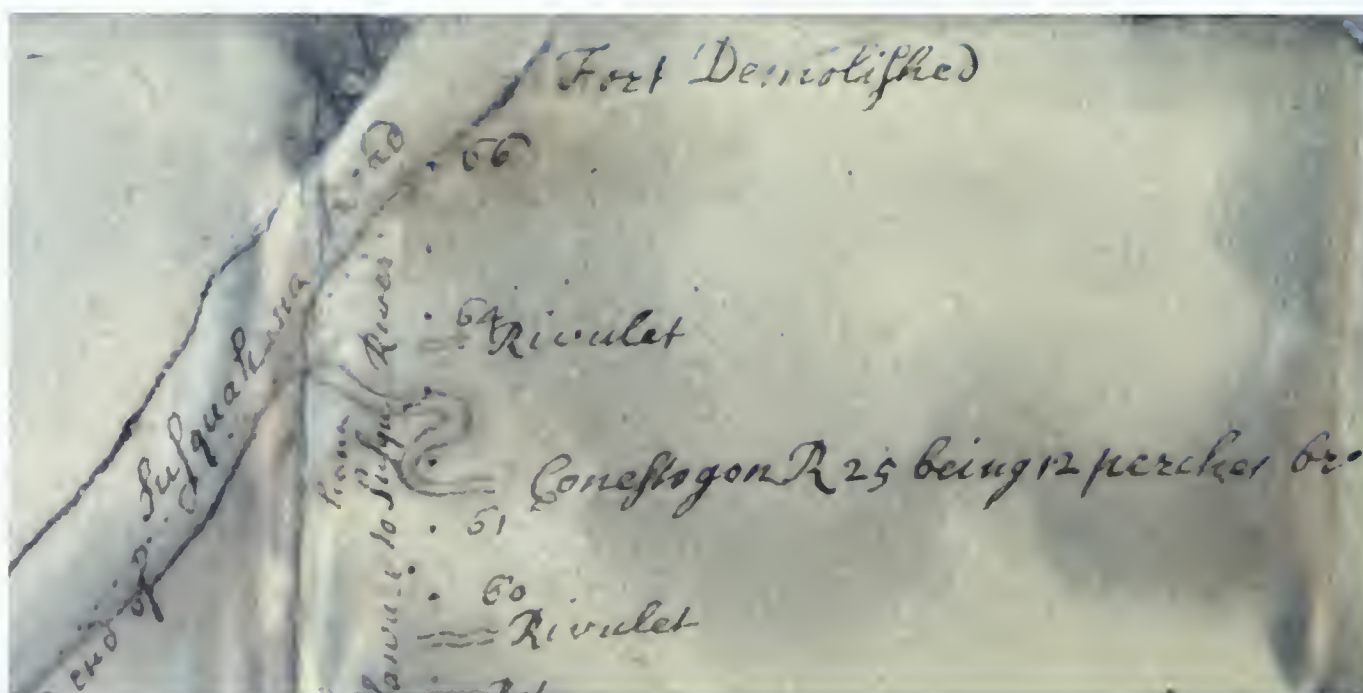 Fort Demolished
66
64
Rivulet
Conestogon R 25 being 12 perches br
61
60
Rivulet
Susquahana
River
hana
to Susqua
end of